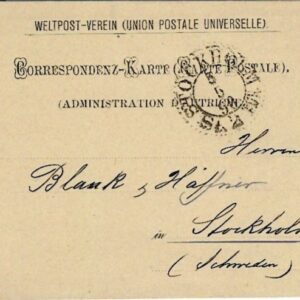 WELTPOST-VEREIN (UNION POSTALE UNIVERSELLE).
CORRESPONDENZ-KARTE (CARTE POSTALE).
(ADMINISTRATION D'AUTRICHE)
STOCKHOLM
Herren
Blank & Häffner
in Stockholm
(Schweden)